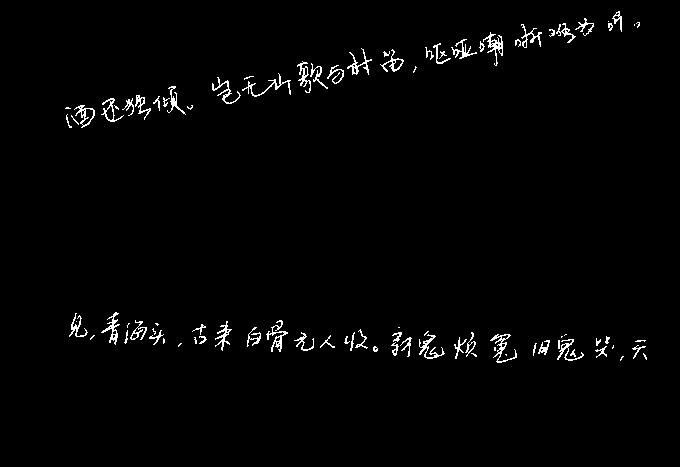 酒还独倾。岂无山歌与村笛，呕哑嘲哳难为听。
见，青海头，古来白骨无人收。新鬼烦冤旧鬼哭，天